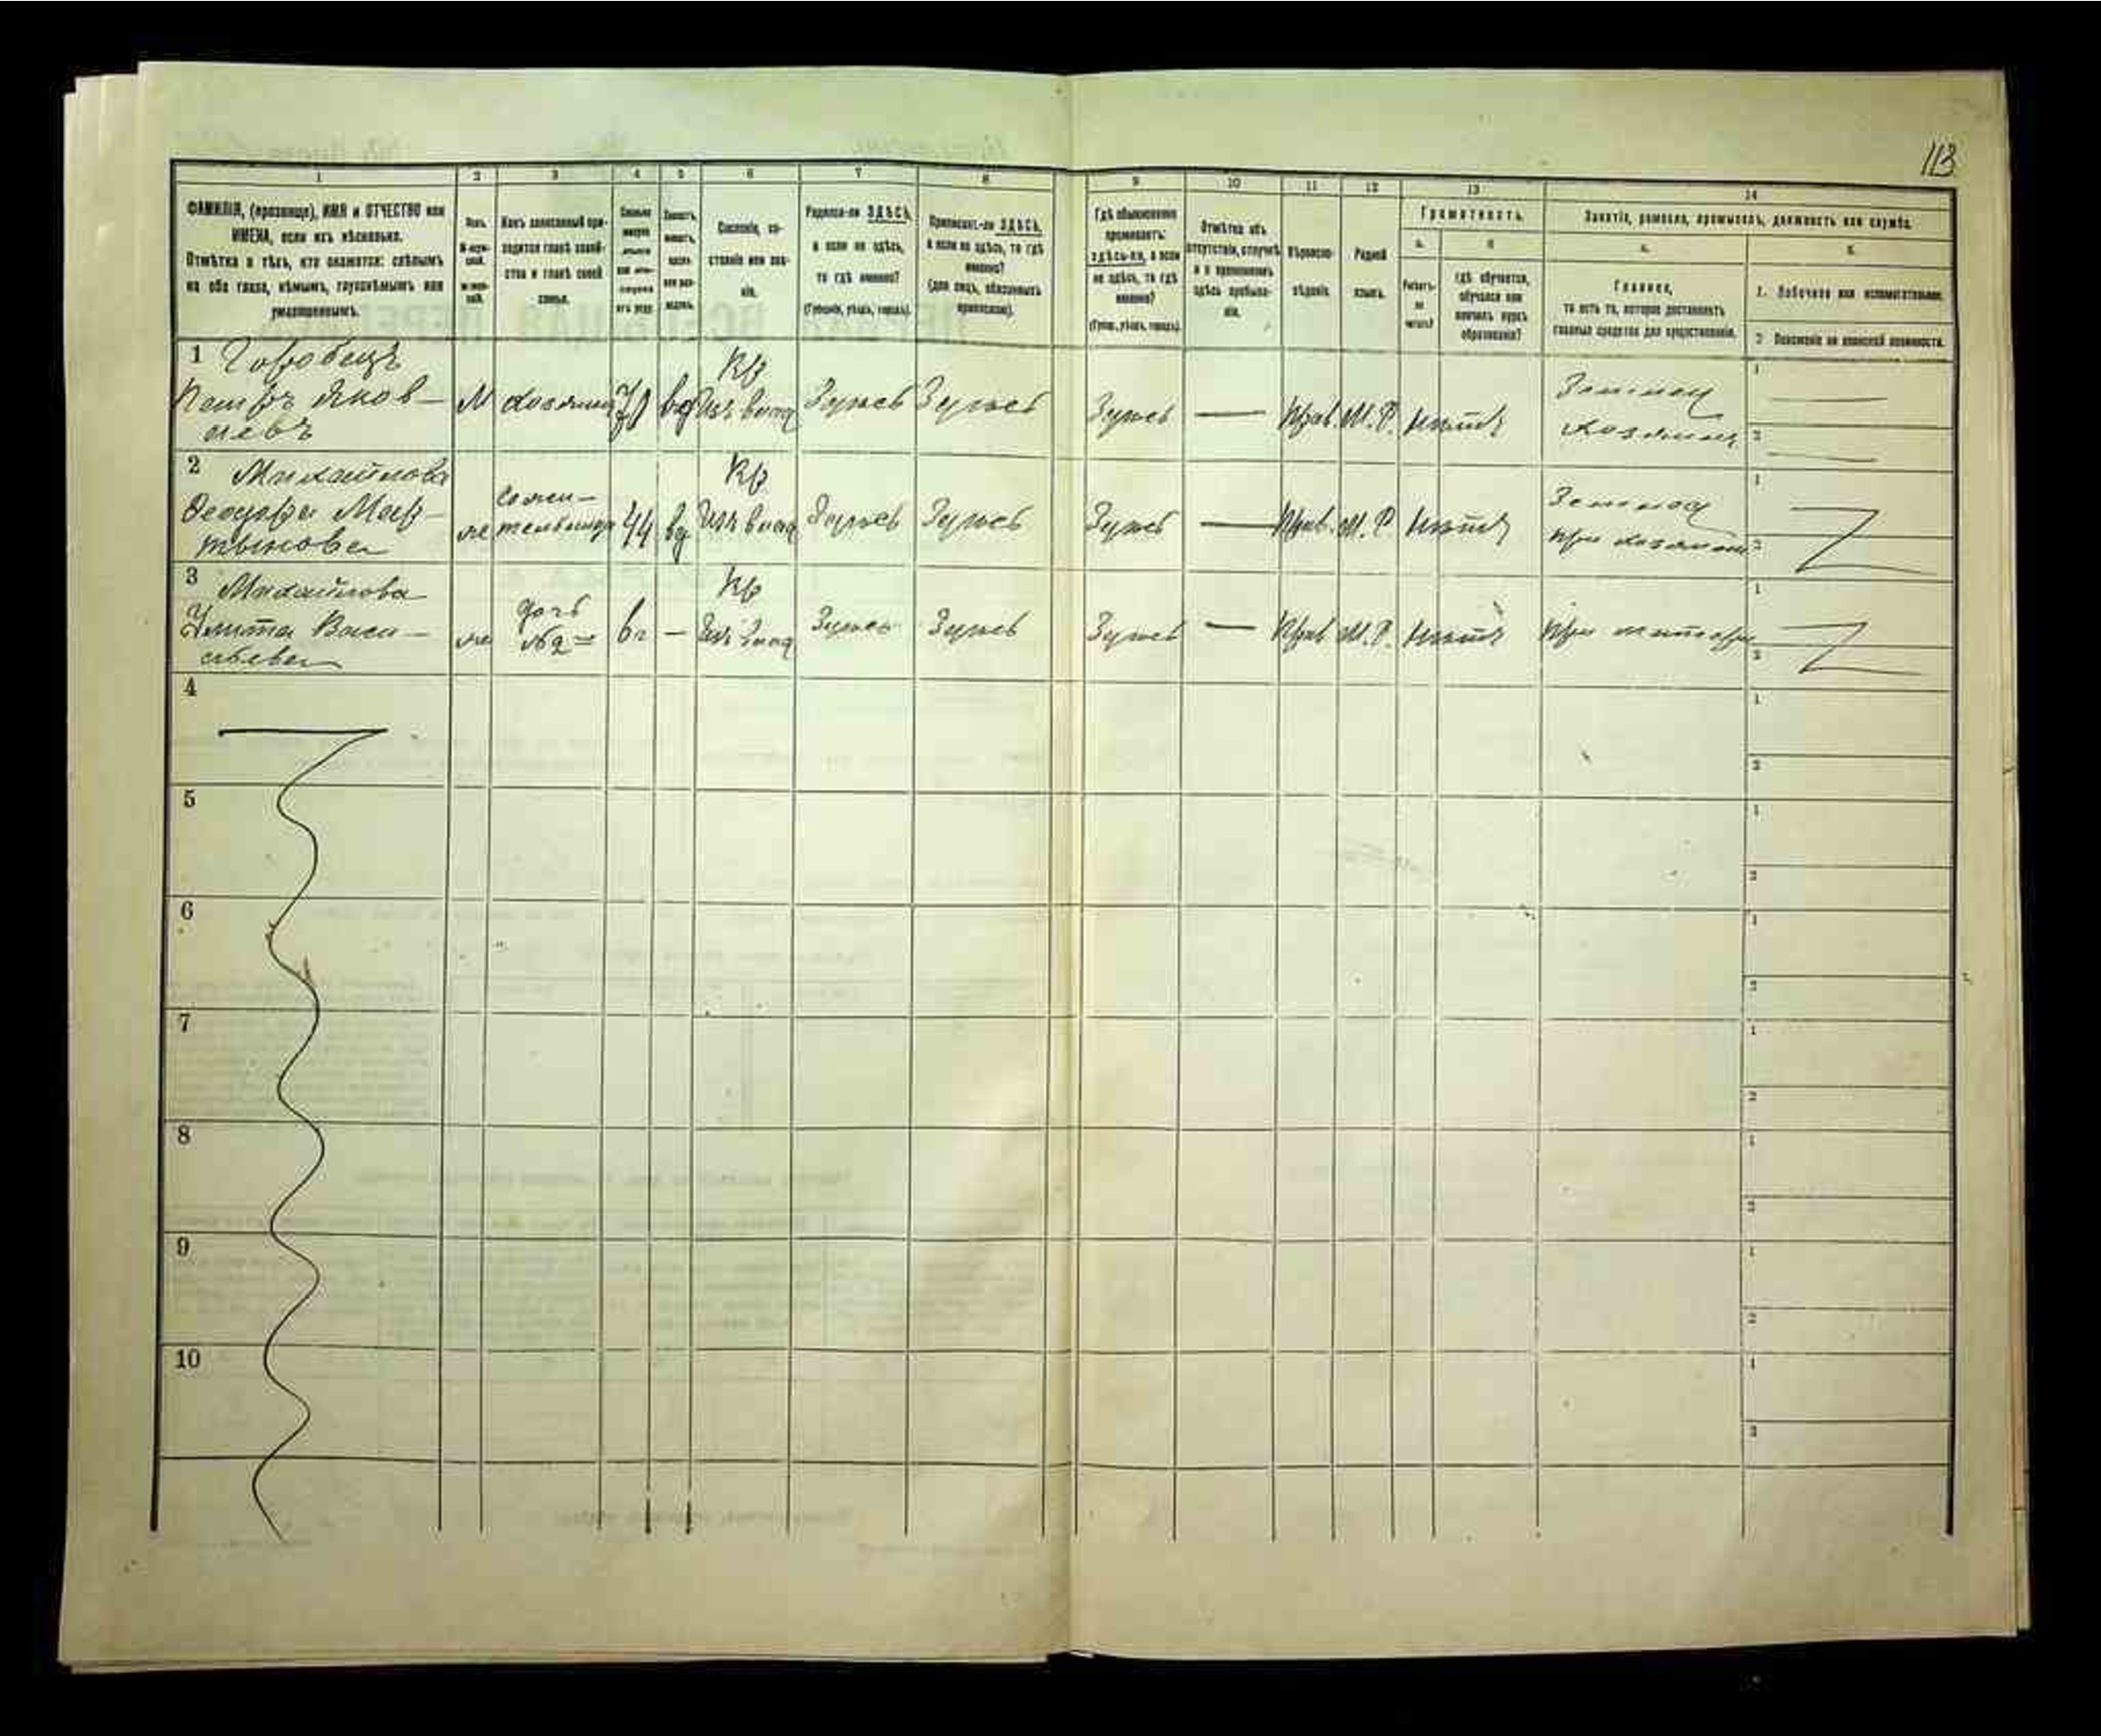 113
1 2 3 4 5 6 7 8 9 10 11 12 13 14
ФАМИЛІЯ, (прозвище), ИМЯ и ОТЧЕСТВО или
ИМЕНА, если ихъ нѣсколько.
Отмѣтка о тѣхъ, кто окажется: слѣпымъ
на оба глаза, нѣмымъ, глухонѣмымъ или
умалишеннымъ.
Полъ.
Какъ записанный при-
ходится главѣ хозяй-
ства и главѣ своей
семьи.
Сословіе, со-
стояніе или зва-
ніе.
Родился-ли ЗДѢСЬ,
а если не здѣсь,
то гдѣ именно?
(Губернія, уѣздъ, городъ).
Приписанъ-ли ЗДѢСЬ,
а если не здѣсь, то гдѣ
именно?
(для лицъ, обязанныхъ
припискою).
Гдѣ обыкновенно
проживаетъ:
здѣсь-ли, а если
не здѣсь, то гдѣ
именно?
(Губер., уѣздъ, городъ).
Отмѣтка объ
отсутствіи, отлучкѣ
и о временномъ
здѣсь пребыва-
ніи.
Вѣроиспо-
вѣданіе.
Родной
языкъ.
Грамотность.
а. б.
Умѣетъ-
ли
читать?
гдѣ обучается,
обучался или
кончилъ курсъ
образованія?
Занятіе, ремесло, промыселъ, должность или служба.
а. б.
Главное,
то есть то, которое доставляетъ
главныя средства для существованія.
1. Побочное или вспомогательное.
2 Положеніе по воинской повинности.
1 Горобецъ
Петръ Яков-
левъ
М
хозяинъ
70
вд
Кр
Изъ влад
Здѣсь
Здѣсь
Здѣсь
—
Прав.
М. Р.
Нѣтъ
Землед
хозяинъ
2 Михайлова
Ѳеодора Мар-
тынова
же
сожи-
тельница
44
вд
Кр
Изъ влад
Здѣсь
Здѣсь
Здѣсь
—
Прав.
М. Р.
Нѣтъ
Землед
при хозяинѣ
3 Михайлова
Улита Васи-
льева
же
дочь
№2
6г
—
Кр
Изъ влад
Здѣсь
Здѣсь
Здѣсь
—
Прав
М. Р.
Нѣтъ
При матери
4
5
6
7
8
9
10